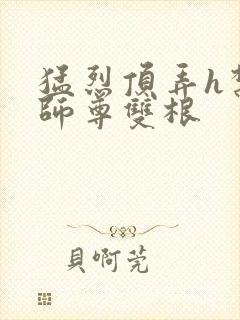 猛烈頂弄h
師尊雙根
貝啊莞